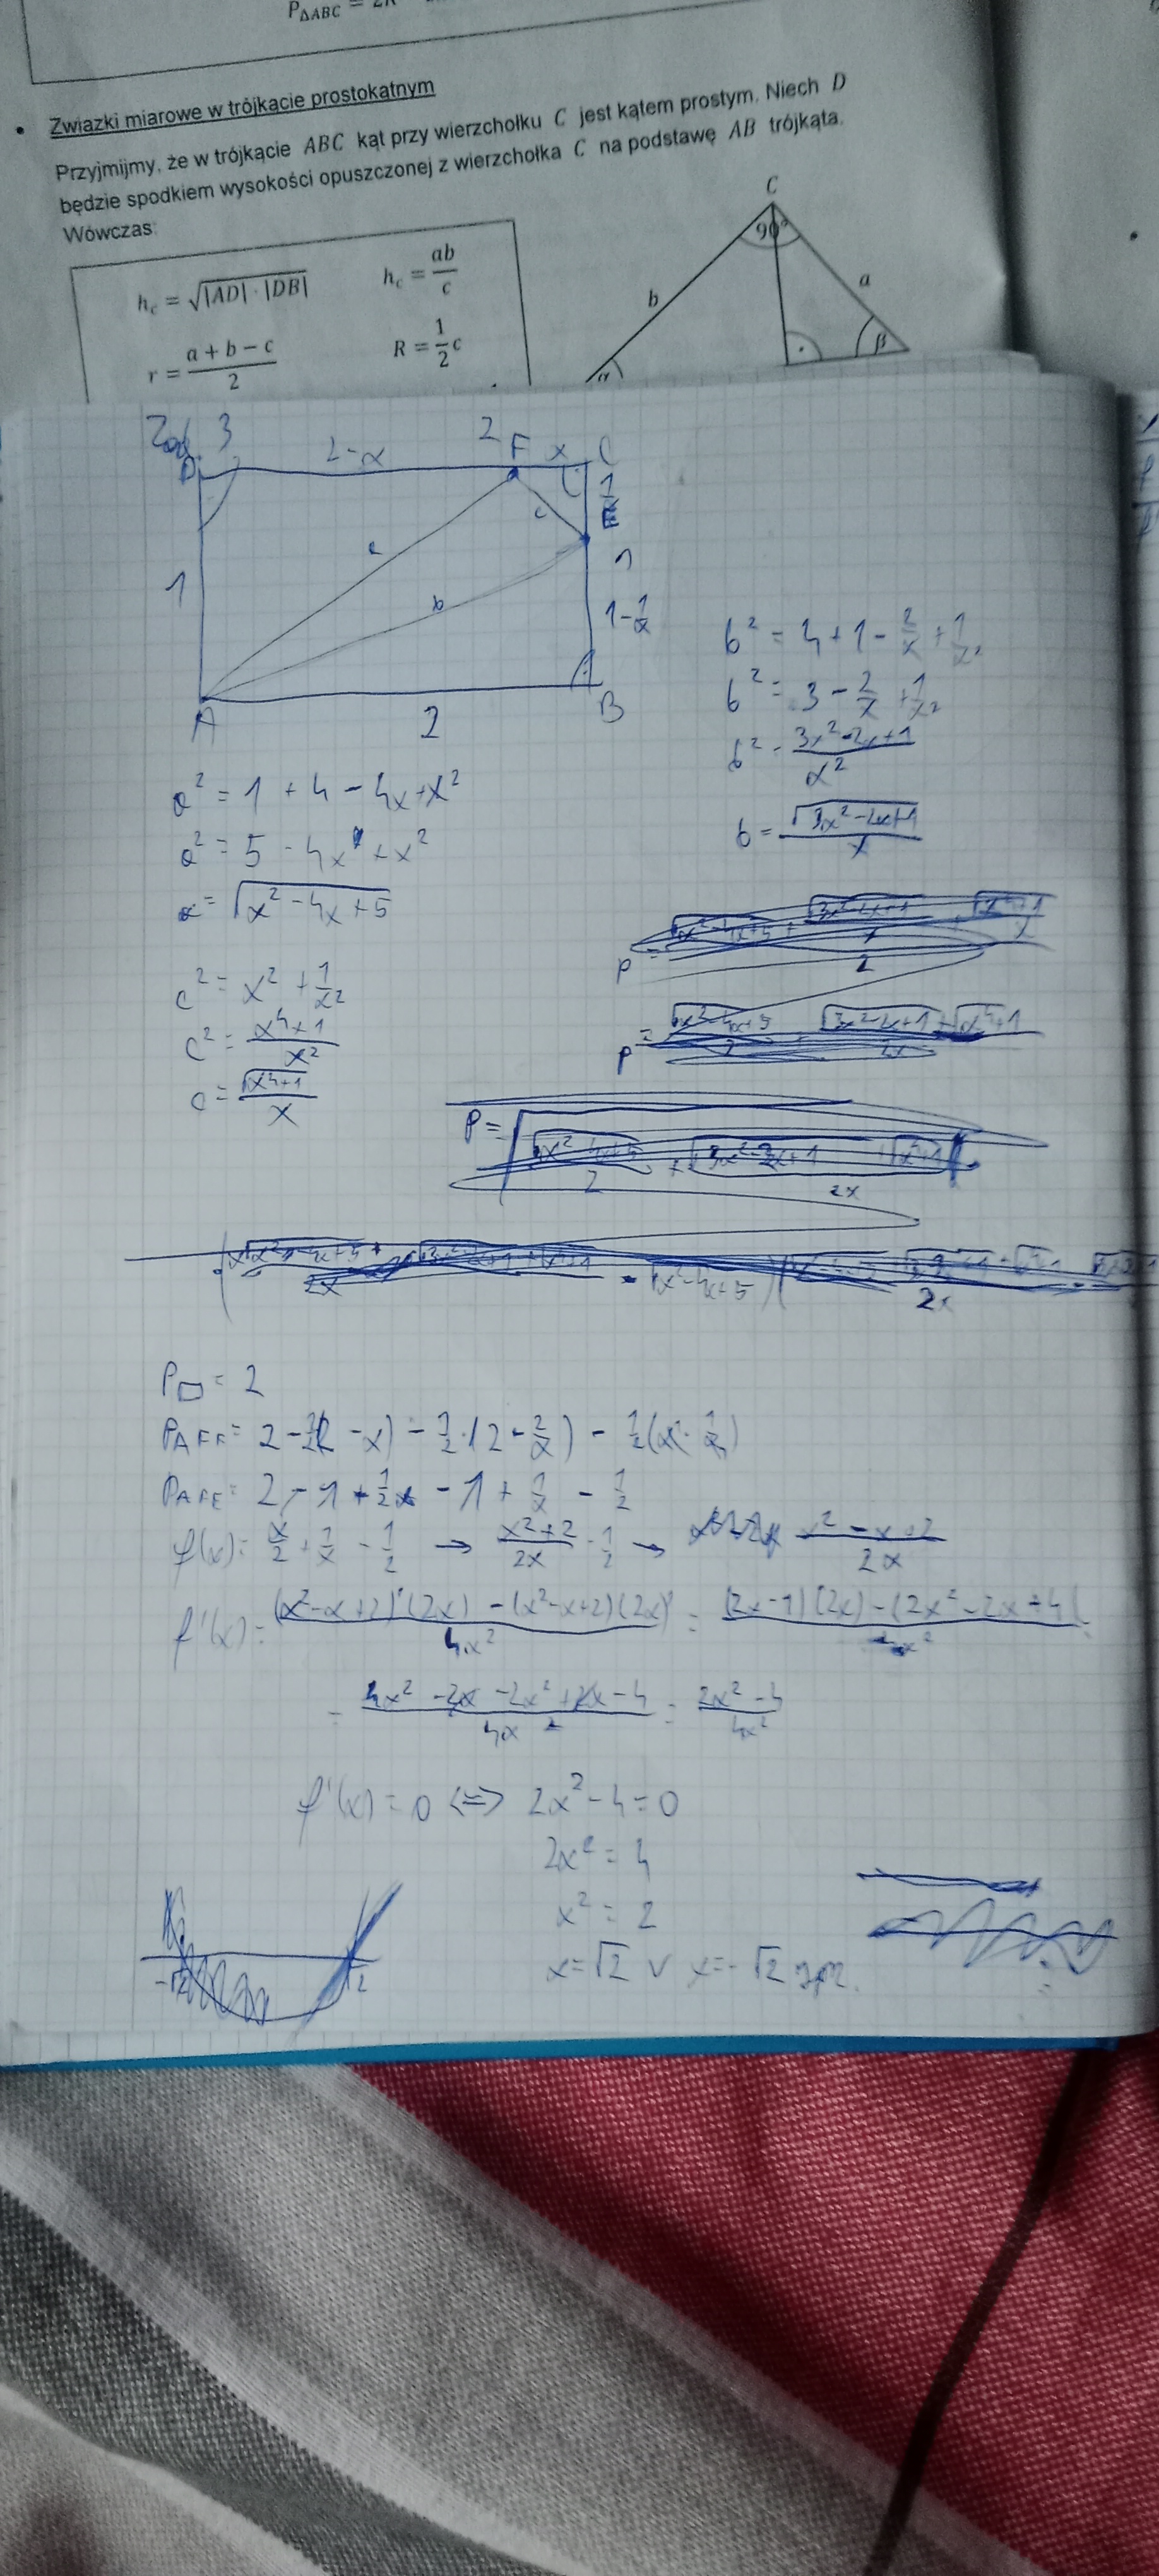 P_{ΔABC} = 2R
• Związki miarowe w trójkącie prostokątnym
Przyjmijmy, że w trójkącie ABC kąt przy wierzchołku C jest kątem prostym. Niech D
będzie spodkiem wysokości opuszczonej z wierzchołka C na podstawę AB trójkąta.
Wówczas:
h_c = √(|AD| · |DB|)
h_c = ab/c
r = (a + b − c)/2
R = 1/2 c
C
90°
b
a
β
α
Zad. 3
D
2-x
2
F
x
C
1/x
E
a
c
1
1
b
1-1/x
A
2
B
b² = 4 + 1 - 2/x + 1/x²
b² = 3 - 2/x + 1/x²
b² = (3x²-2x+1)/x²
b = √(3x²-2x+1)/x
a² = 1 + 4 - 4x + x²
a² = 5 - 4x + x²
a = √(x² - 4x + 5)
c² = x² + 1/x²
c² = (x⁴+1)/x²
c = √(x⁴+1)/x
P▭ = 2
P_{AFE} = 2 - 1/2(2 - x) - 1/2 · (2 - 2/x) - 1/2(x · 1/x)
P_{AFE} = 2 - 1 + 1/2x - 1 + 1/x - 1/2
f(x) = x/2 + 1/x - 1/2 → (x²+2)/2x - 1/2 → (x² - x + 2)/2x
f'(x) = ((x²-x+2)'(2x) - (x²-x+2)(2x)')/4x² = ((2x-1)(2x) - (2x²-2x+4))/4x² =
= (4x² - 2x - 2x² + 2x - 4)/4x² = (2x²-4)/4x²
f'(x) = 0 <=> 2x² - 4 = 0
2x² = 4
x² = 2
x = √2 v x = -√2
-√2
√2